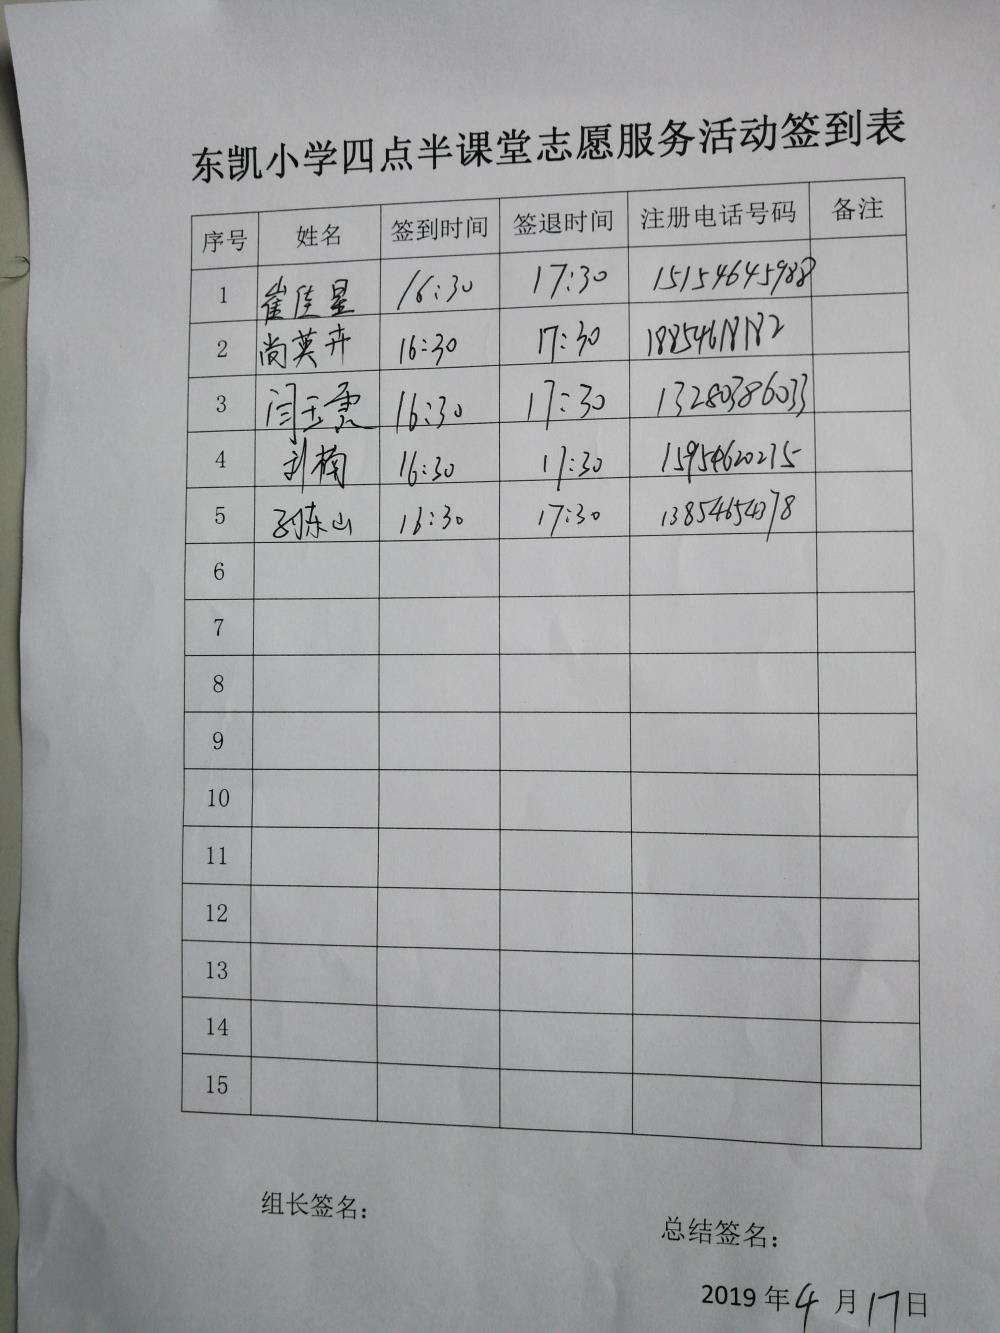 东凯小学四点半课堂志愿服务活动签到表
序号 姓名 签到时间 签退时间 注册电话号码 备注
1 崔佳星 16:30 17:30 15154645988
2 尚英卉 16:30 17:30 18854618182
3 闫玉霞 16:30 17:30 13280386033
4 刘楠 16:30 17:30 15954620275
5 孙东山 16:30 17:30 13854654378
6
7
8
9
10
11
12
13
14
15
组长签名：
总结签名：
2019年4月17日